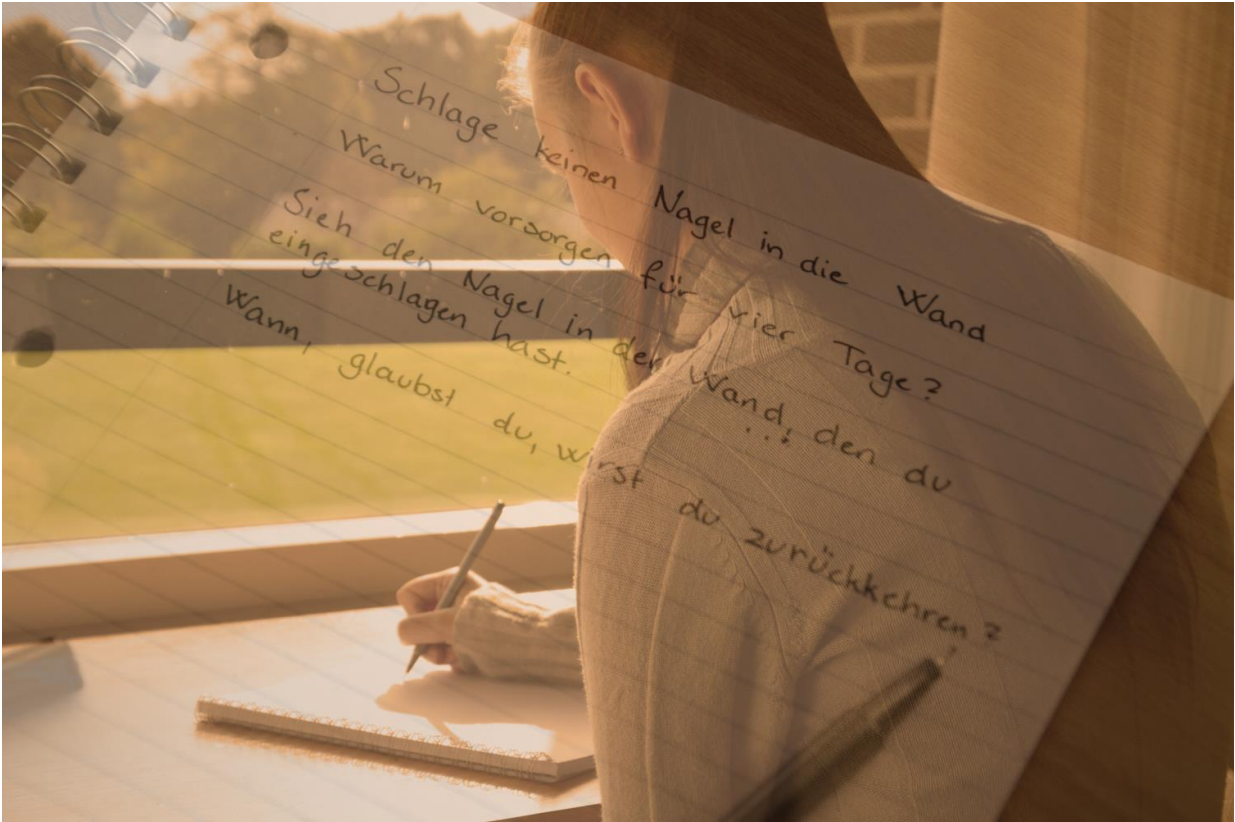 Schlage keinen Nagel in die Wand
Warum vorsorgen für vier Tage?
Sieh den Nagel in der Wand, den du
eingeschlagen hast.
...
Wann, glaubst du, wirst du zurückkehren?